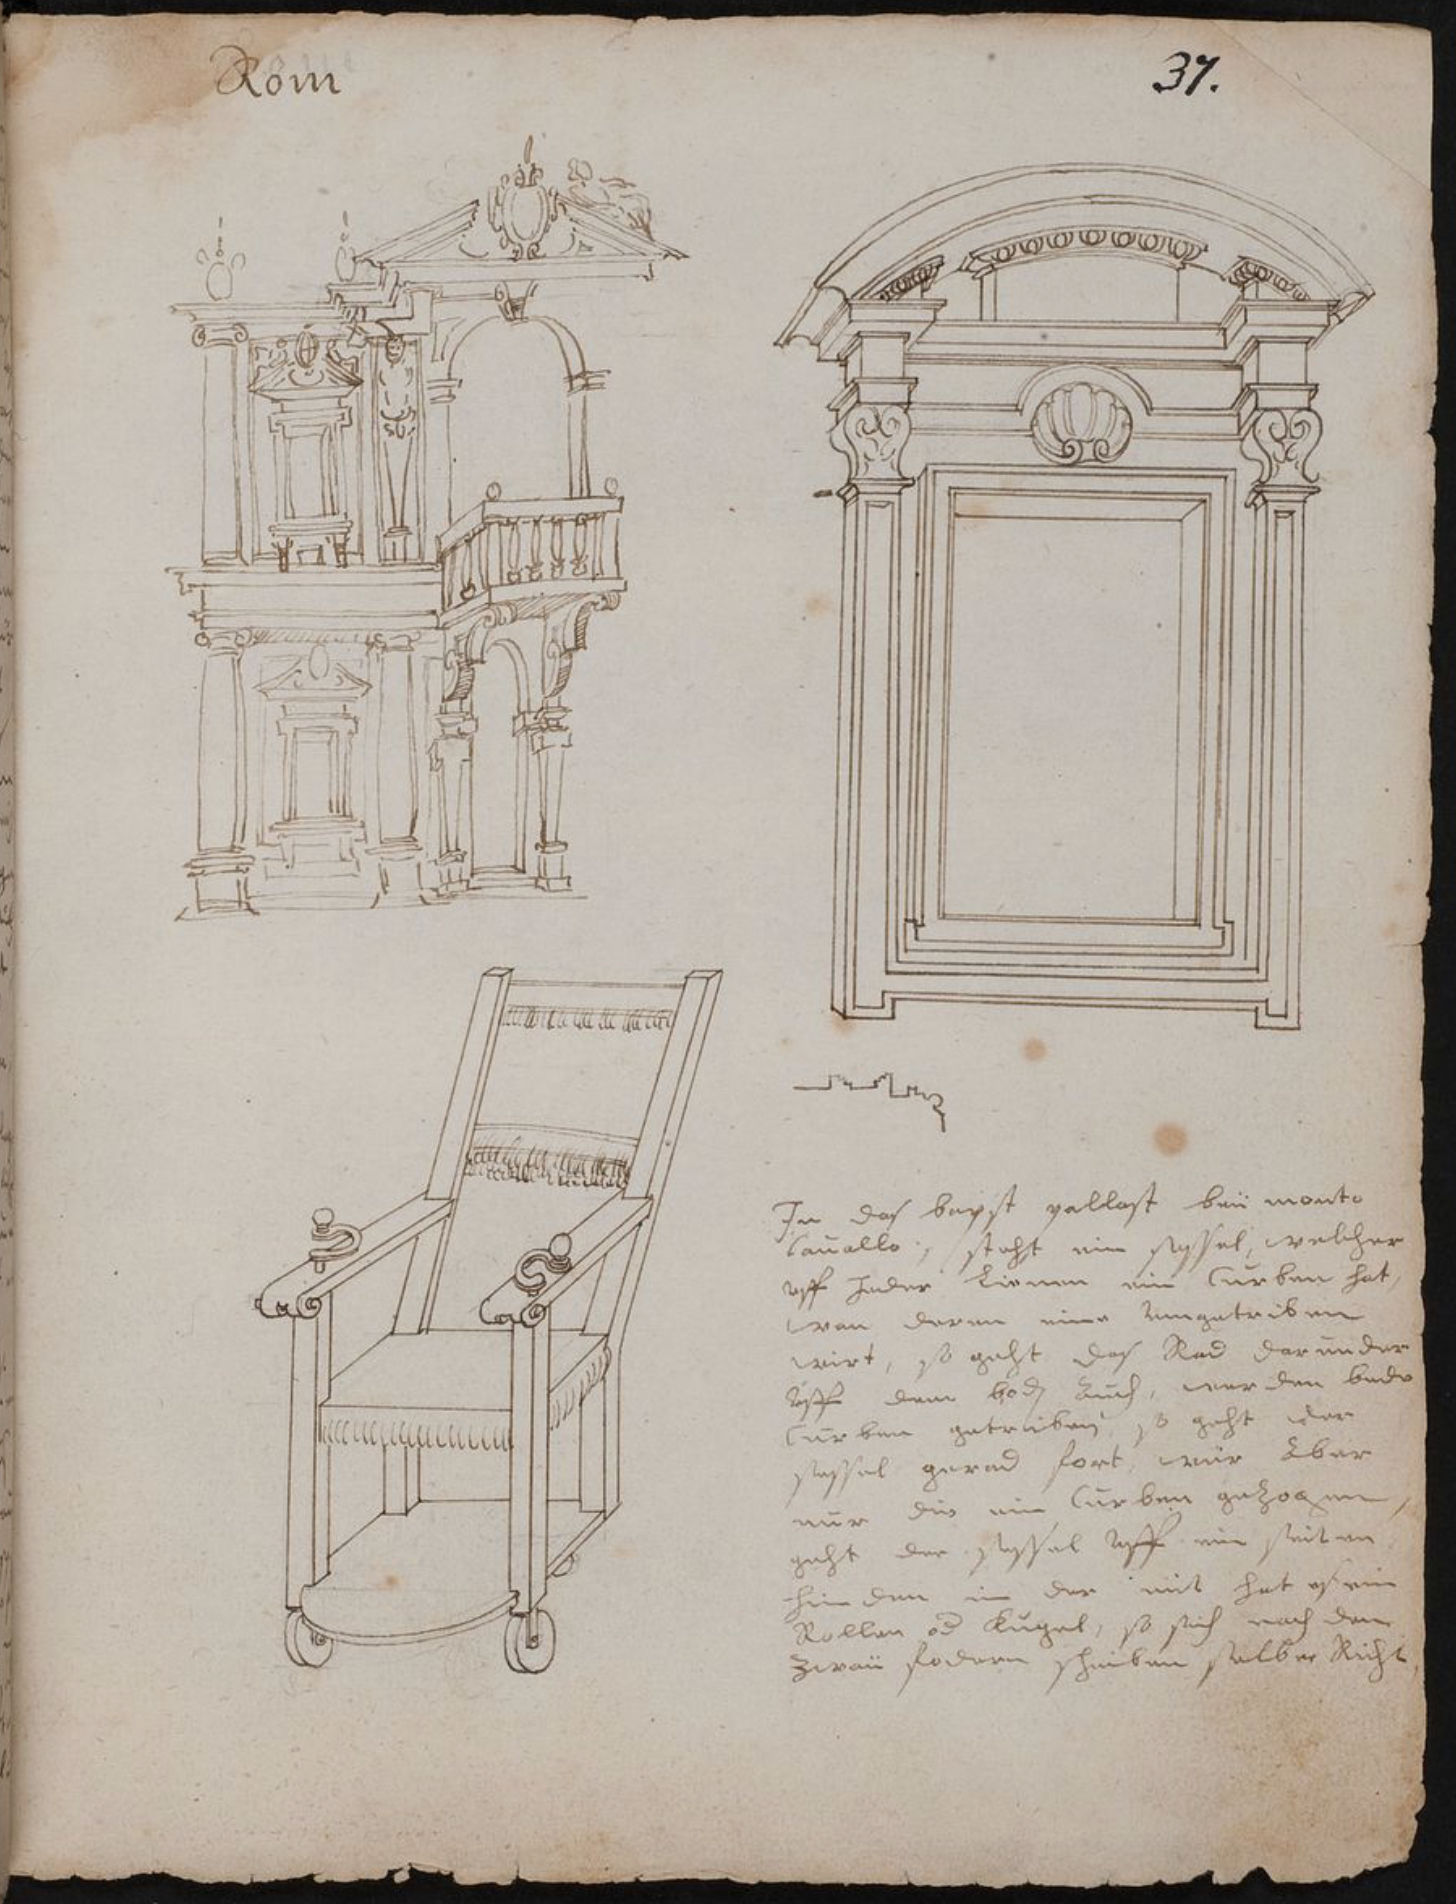 Rom
37.
In des bapst pallast beü monte
Cauallo, steht ein sessel, welcher
uff Jeder Lienen ein Curben hat,
wan deren eine umgetriben
wirt, so geht das Rad darunder
uff dem bod auch, werden bede
Curben getriben, so geht der
sessel gerad fort, wür Aber
nur die ein Curben gezogen,
geht der sessel uff ein seiten
hinden in der mit hat es ein
Rollen od Kugel, so sich nach den
zwaü fodern scheiben selber Richt